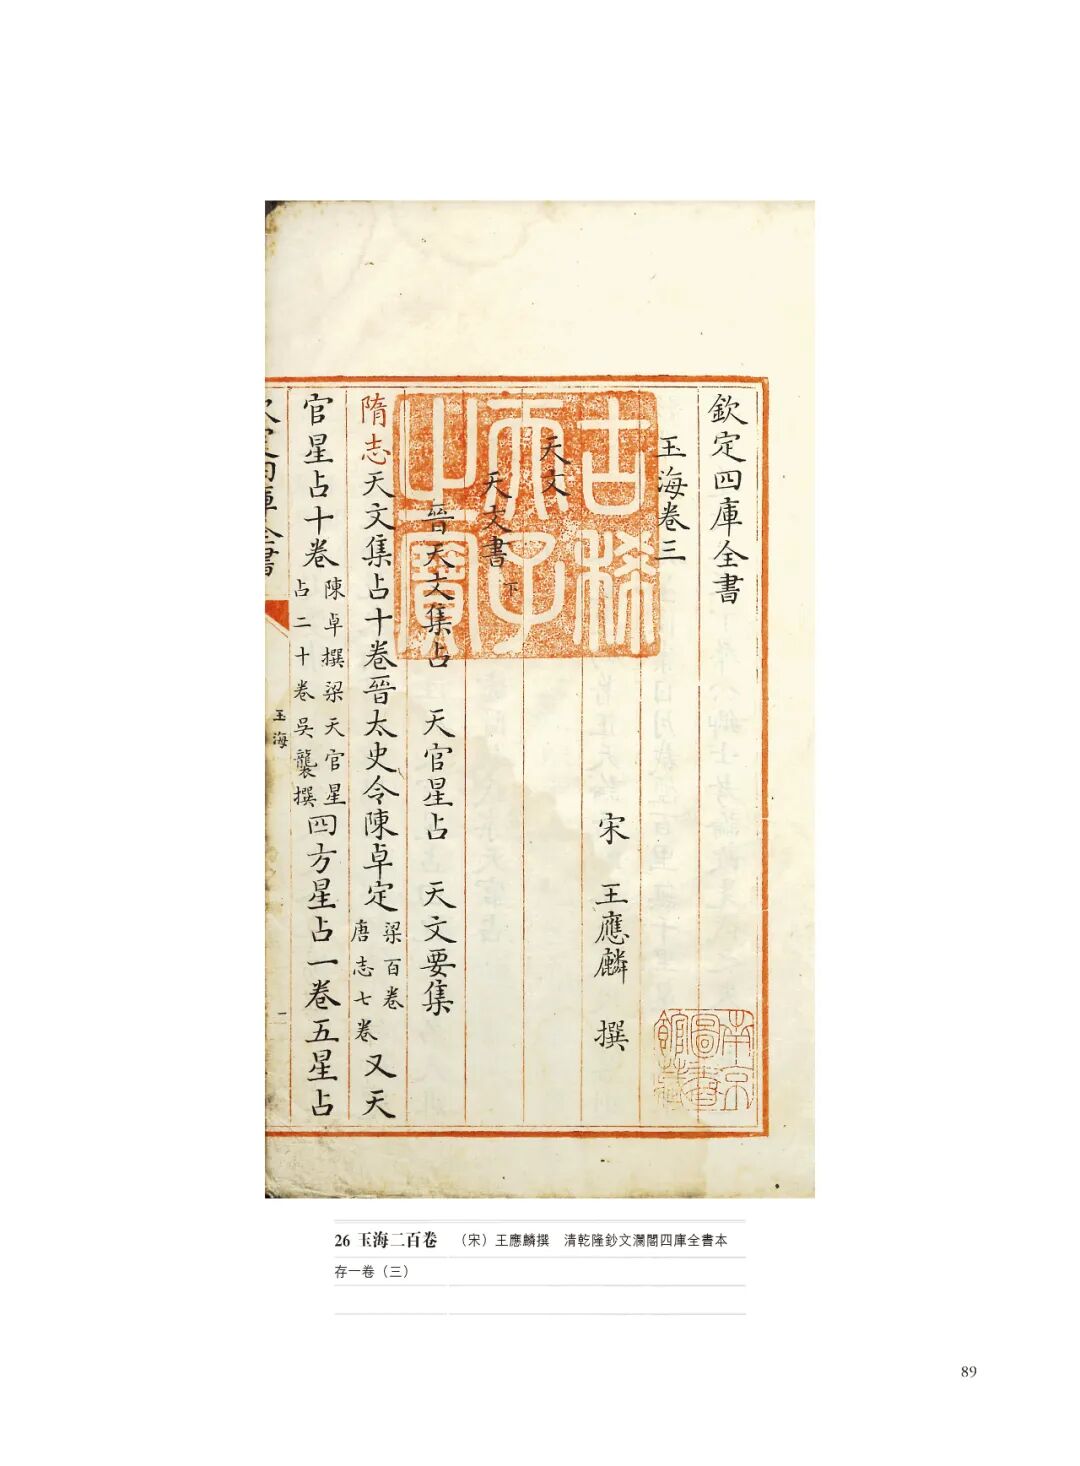 欽定四庫全書
玉海卷三
宋 王應麟 撰
天文
天文書下
晉天文集占 天官星占 天文要集
隋志天文集占十卷晉太史令陳卓定梁百卷唐志七卷又天
官星占十卷陳卓撰梁天官星占二十卷吳襲撰四方星占一卷五星占
欽定四庫全書
玉海
一
古稀天子之寶
南京圖書館藏
26 玉海二百卷 （宋）王應麟撰 清乾隆鈔文瀾閣四庫全書本
存一卷（三）
89